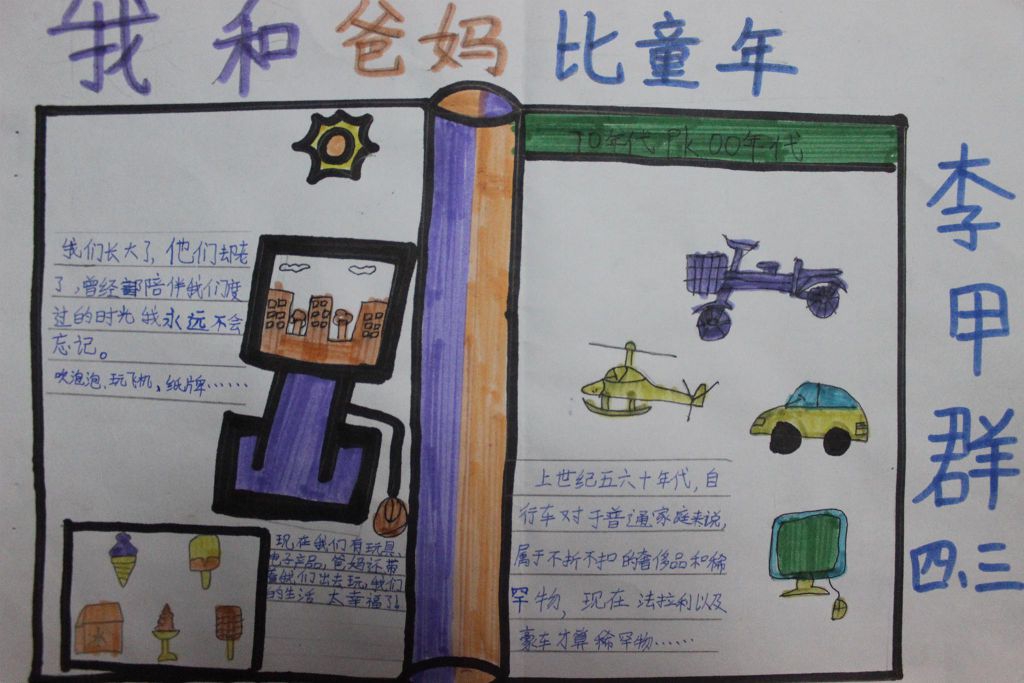 我和爸妈比童年
70年代Pk 00年代
我们长大了,他们去陪
了,曾经都陪伴我们度
过的时光我永远不会
忘记。
吹泡泡、玩飞机、纸牌……
现在我们有玩具、
电子产品,爸妈还带
着我们出去玩,我们
的生活 太幸福了!
上世纪五六十年代,自
行车对于普通家庭来说,
属于不折不扣的奢侈品和稀
罕物,现在法拉利以及
豪车才算稀罕物……
李甲群
四、三